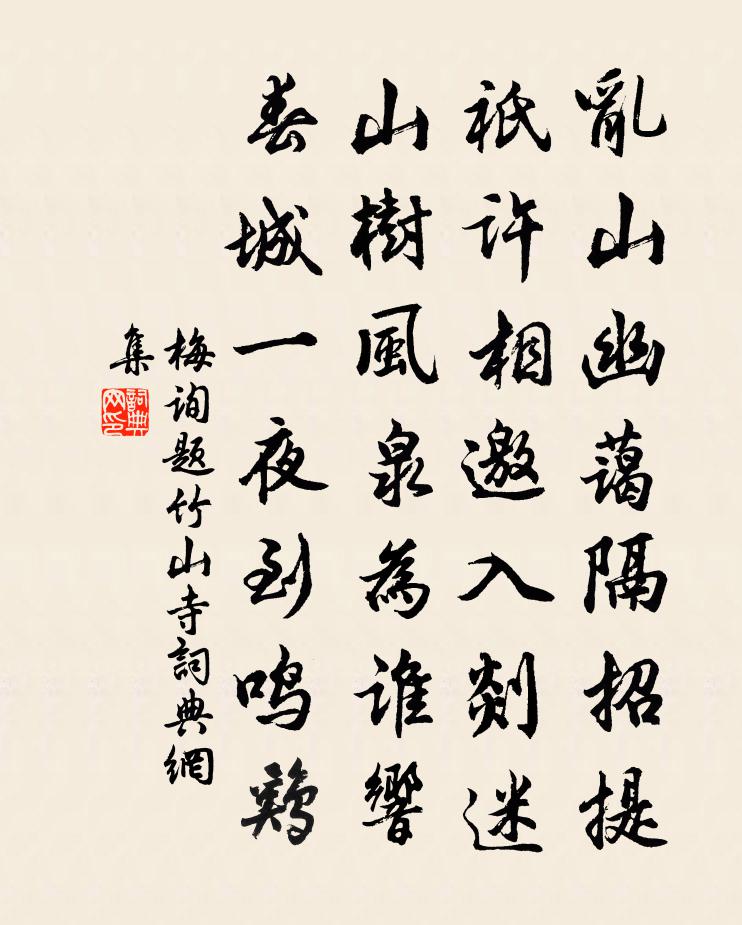 亂山幽藹隔招提
祇許相邀入剡迷
山樹風泉為誰響
春城一夜到鳴鷄
梅詢題竹山寺詞典網
集
詞典
网印